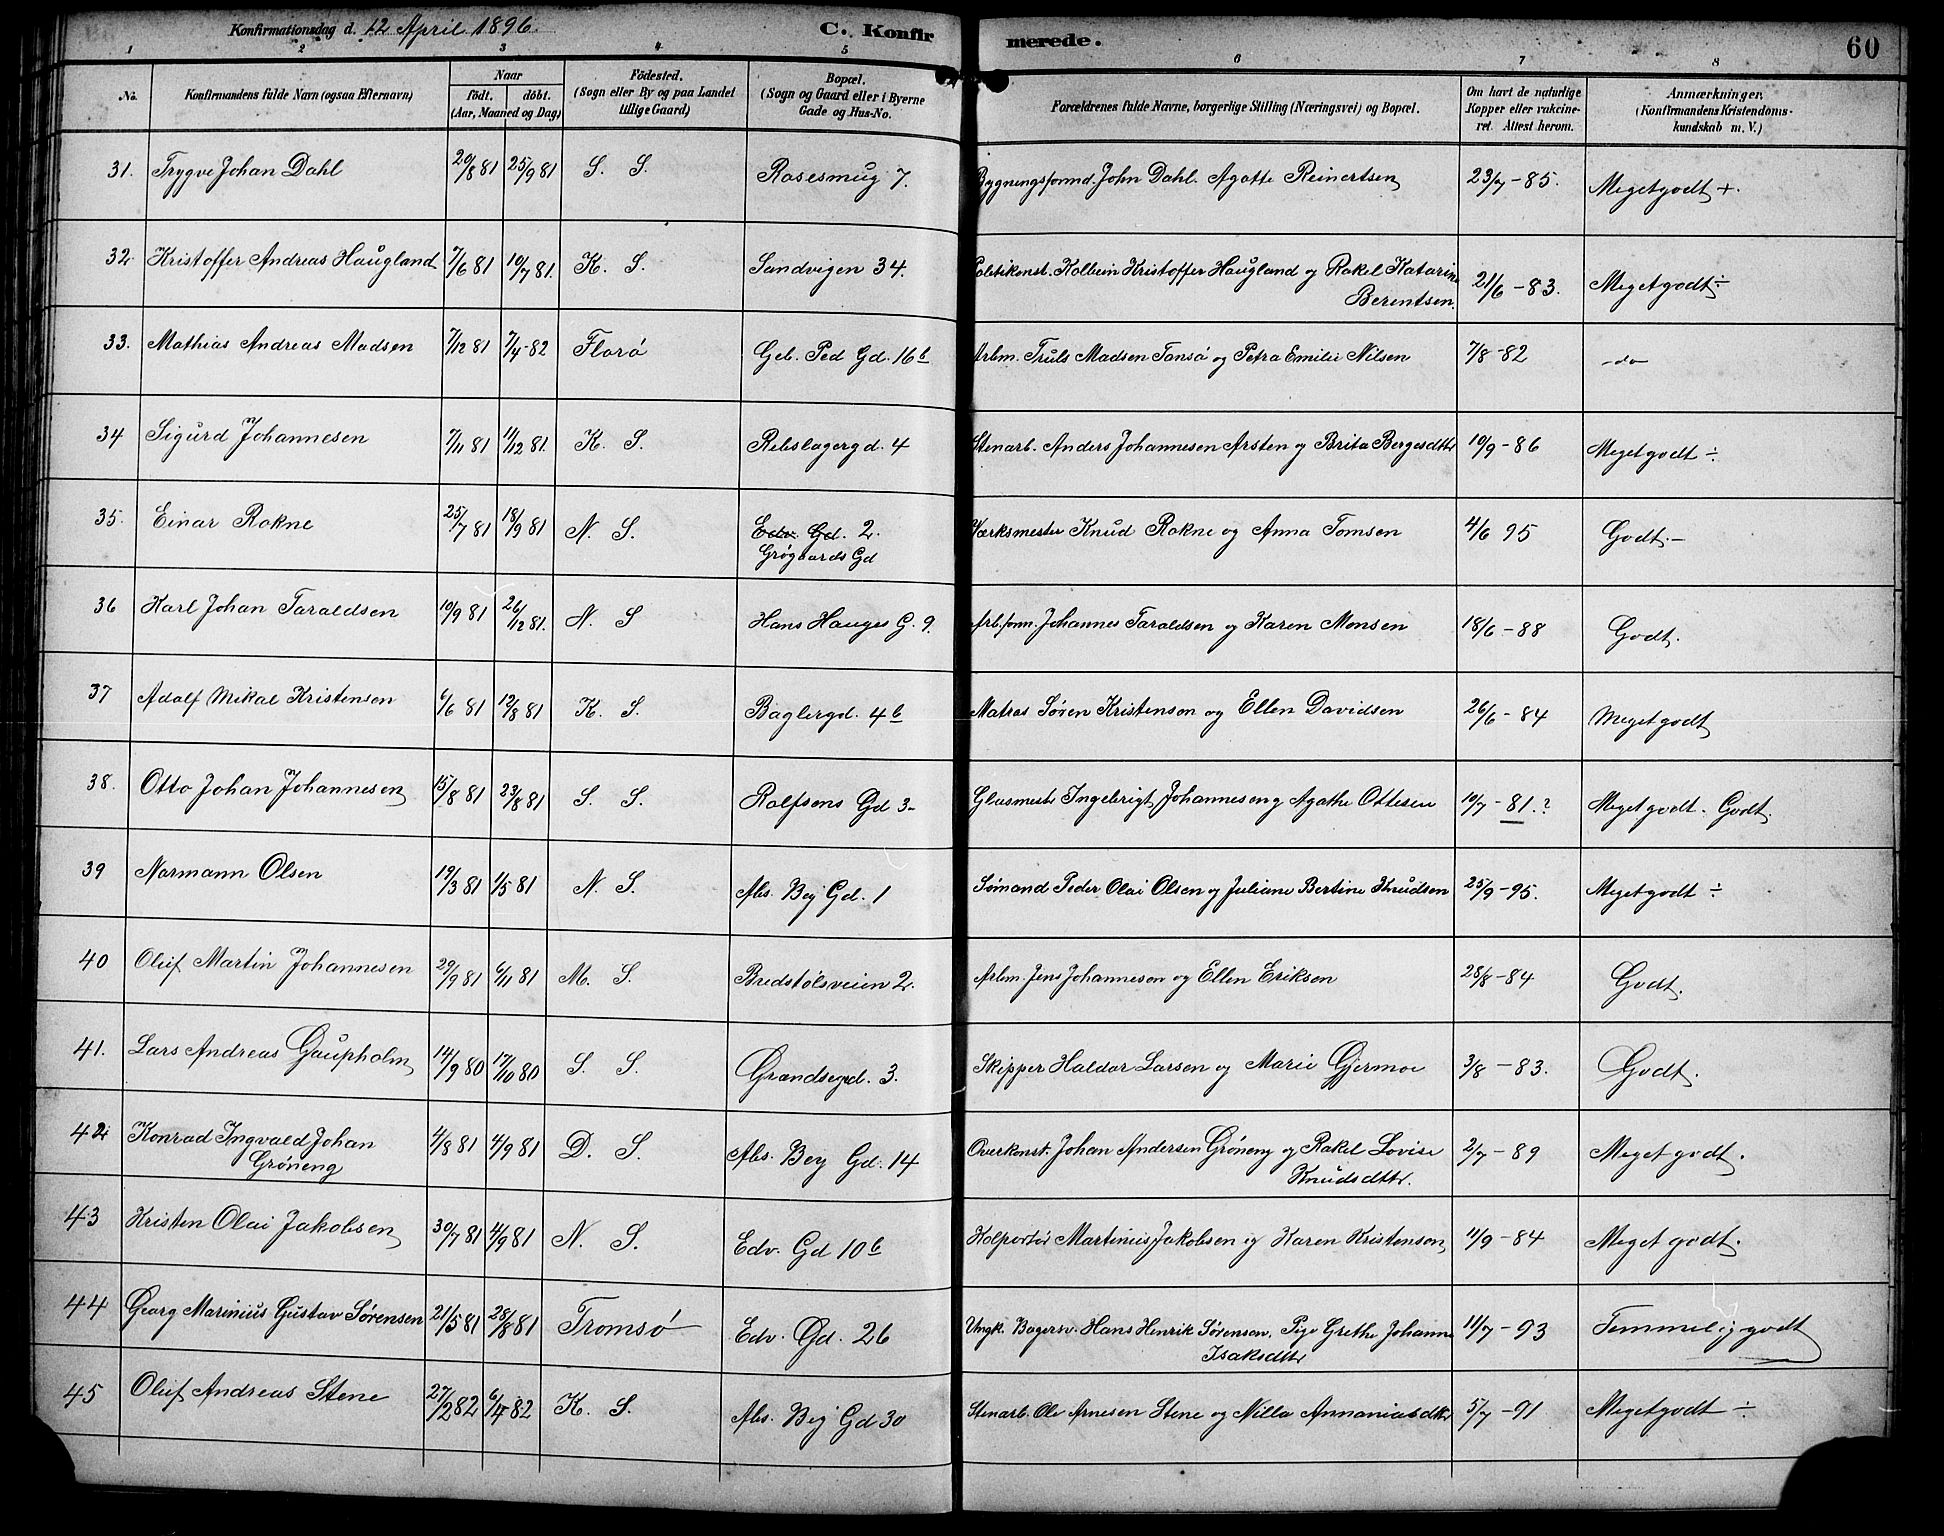 Konfirmationsdag d. 12 April 1896. C. Konfirmerede. 60
1 2 3 4 5 6 7 8
No. Konfirmandens fulde Navn (ogsaa Efternavn) Naar født. døbt. (Aar, Maaned og Dag) Födested. (Sogn eller By og paa Landet tillige Gaard) Bopæl. (Sogn og Gaard eller i Byerne Gade og Hus-No. Forældrenes fulde Navne, borgerlige Stilling (Næringsvei) og Bopæl. Om havt de naturlige Kopper eller vakcineret. Attest herom. Anmærkninger, (Konfirmandens Kristendomskundskab m. V.)
31. Trygve Johan Dahl 20/8 81 25/9 81 S. S. Rosesmug 7. Bygningsformd. John Dahl. Agatte Reinertsen 23/7 - 85. Megetgodt +.
32. Kristoffer Andreas Haugland 7/6 81 10/7 81. K. S. Sandvigen 34. Politikonst. Kolbein Kristoffer Haugland og Rakel Katarina
Berentsen. 21/6 - 83. Megetgodt ÷
33. Mathias Andreas Madsen 7/12 81 7/4 - 82 Florø Geb. Ped Gd. 16 b Arbm. Truls Madsen Tansø og Petra Emilie Nilsen 7/8 - 82 - do -
34 Sigurd Johannesen 7/11 81 11/12 81. K. S. Rebslagergd. 4 Stenarb. Anders Johannesen Arsten og Brita Bergesdttr 10/9 - 86 Megetgodt ÷.
35. Einar Rokne 25/7 81 18/9 81 N. S. Edv. Gd. 2.
Grøgaards Gd Værksmester Knud Rokne og Anna Tomsen 4/6 95 Godt. -
36 Karl Johan Taraldsen 10/9 81 26/12 81. N. S Hans Hauges G. 9. Arb.form. Johannes Taraldsen og Karen Monsen 18/6 - 88 Godt.
37 Adolf Mikal Kristensen 6/6 81 12/8 81 K. S. Baglergd. 4 b Matros Søren Kristenson og Ellen Davidsen 26/6 - 84 Megetgodt
38. Otto Johan Johannesen 15/8 81 23/8 81 S. S. Rolfsens Gd 3- Glasmestr Ingebrigt Johannesen og Agathe Ottesen 10/7 - 81.? Megetgodt. Godt.
39 Normann Olsen 19/3 81 1/5 81 N. S. Abs. Bej Gd. 1 Sømand Peder Olai Olsen og Juliane Bertine Knudsen 25/9 - 95. Megetgodt ÷
40 Oluf Martin Johannesen 29/9 81 6/11 81 M. S. Bredstølsveien 2. Arbm. Jens Johanneson og Ellen Eriksen 28/8 - 84 Godt.
41. Lars Andreas Gaupholm 14/9 80 17/10 80 S. S. Grandsegd. 3. Skipper Haldor Larsen og Marie Gjermoe 3/8 - 83. Godt.
42 Konrad Ingvald Johan
Grøneng 4/8 81 4/9 81 D. S. Abs. Bey Gd. 14 Overkonst. Johan Andersen Grøneng og Rakel Lovise
Knudsdttr. 2/7 - 89 Meget godt.
43 Kristen Olai Jakobsen 30/7 81 4/9 81 N. S. Edv. Gd 10 b Kolportør Martinius Jakobsen og Karen Kristenson 11/9 - 84 Meget godt.
44 Georg Marinius Gustav Sørensen 21/5 81 28/8 81 Tromsø Edv. Gd. 26 Ungk. Bagersv. Hans Henrik Sørenson. Pige Grethe Johanne
Isaksdttr 11/7 - 93 Temmelig godt
45 Oluf Andreas Stene 27/2 82 6/4 82 K. S. Abs. Bej Gd 30 Stenarb. Ole Arnesen Stene og Nilla Annaniasdttr 5/7 - 91 Megetgodt ÷